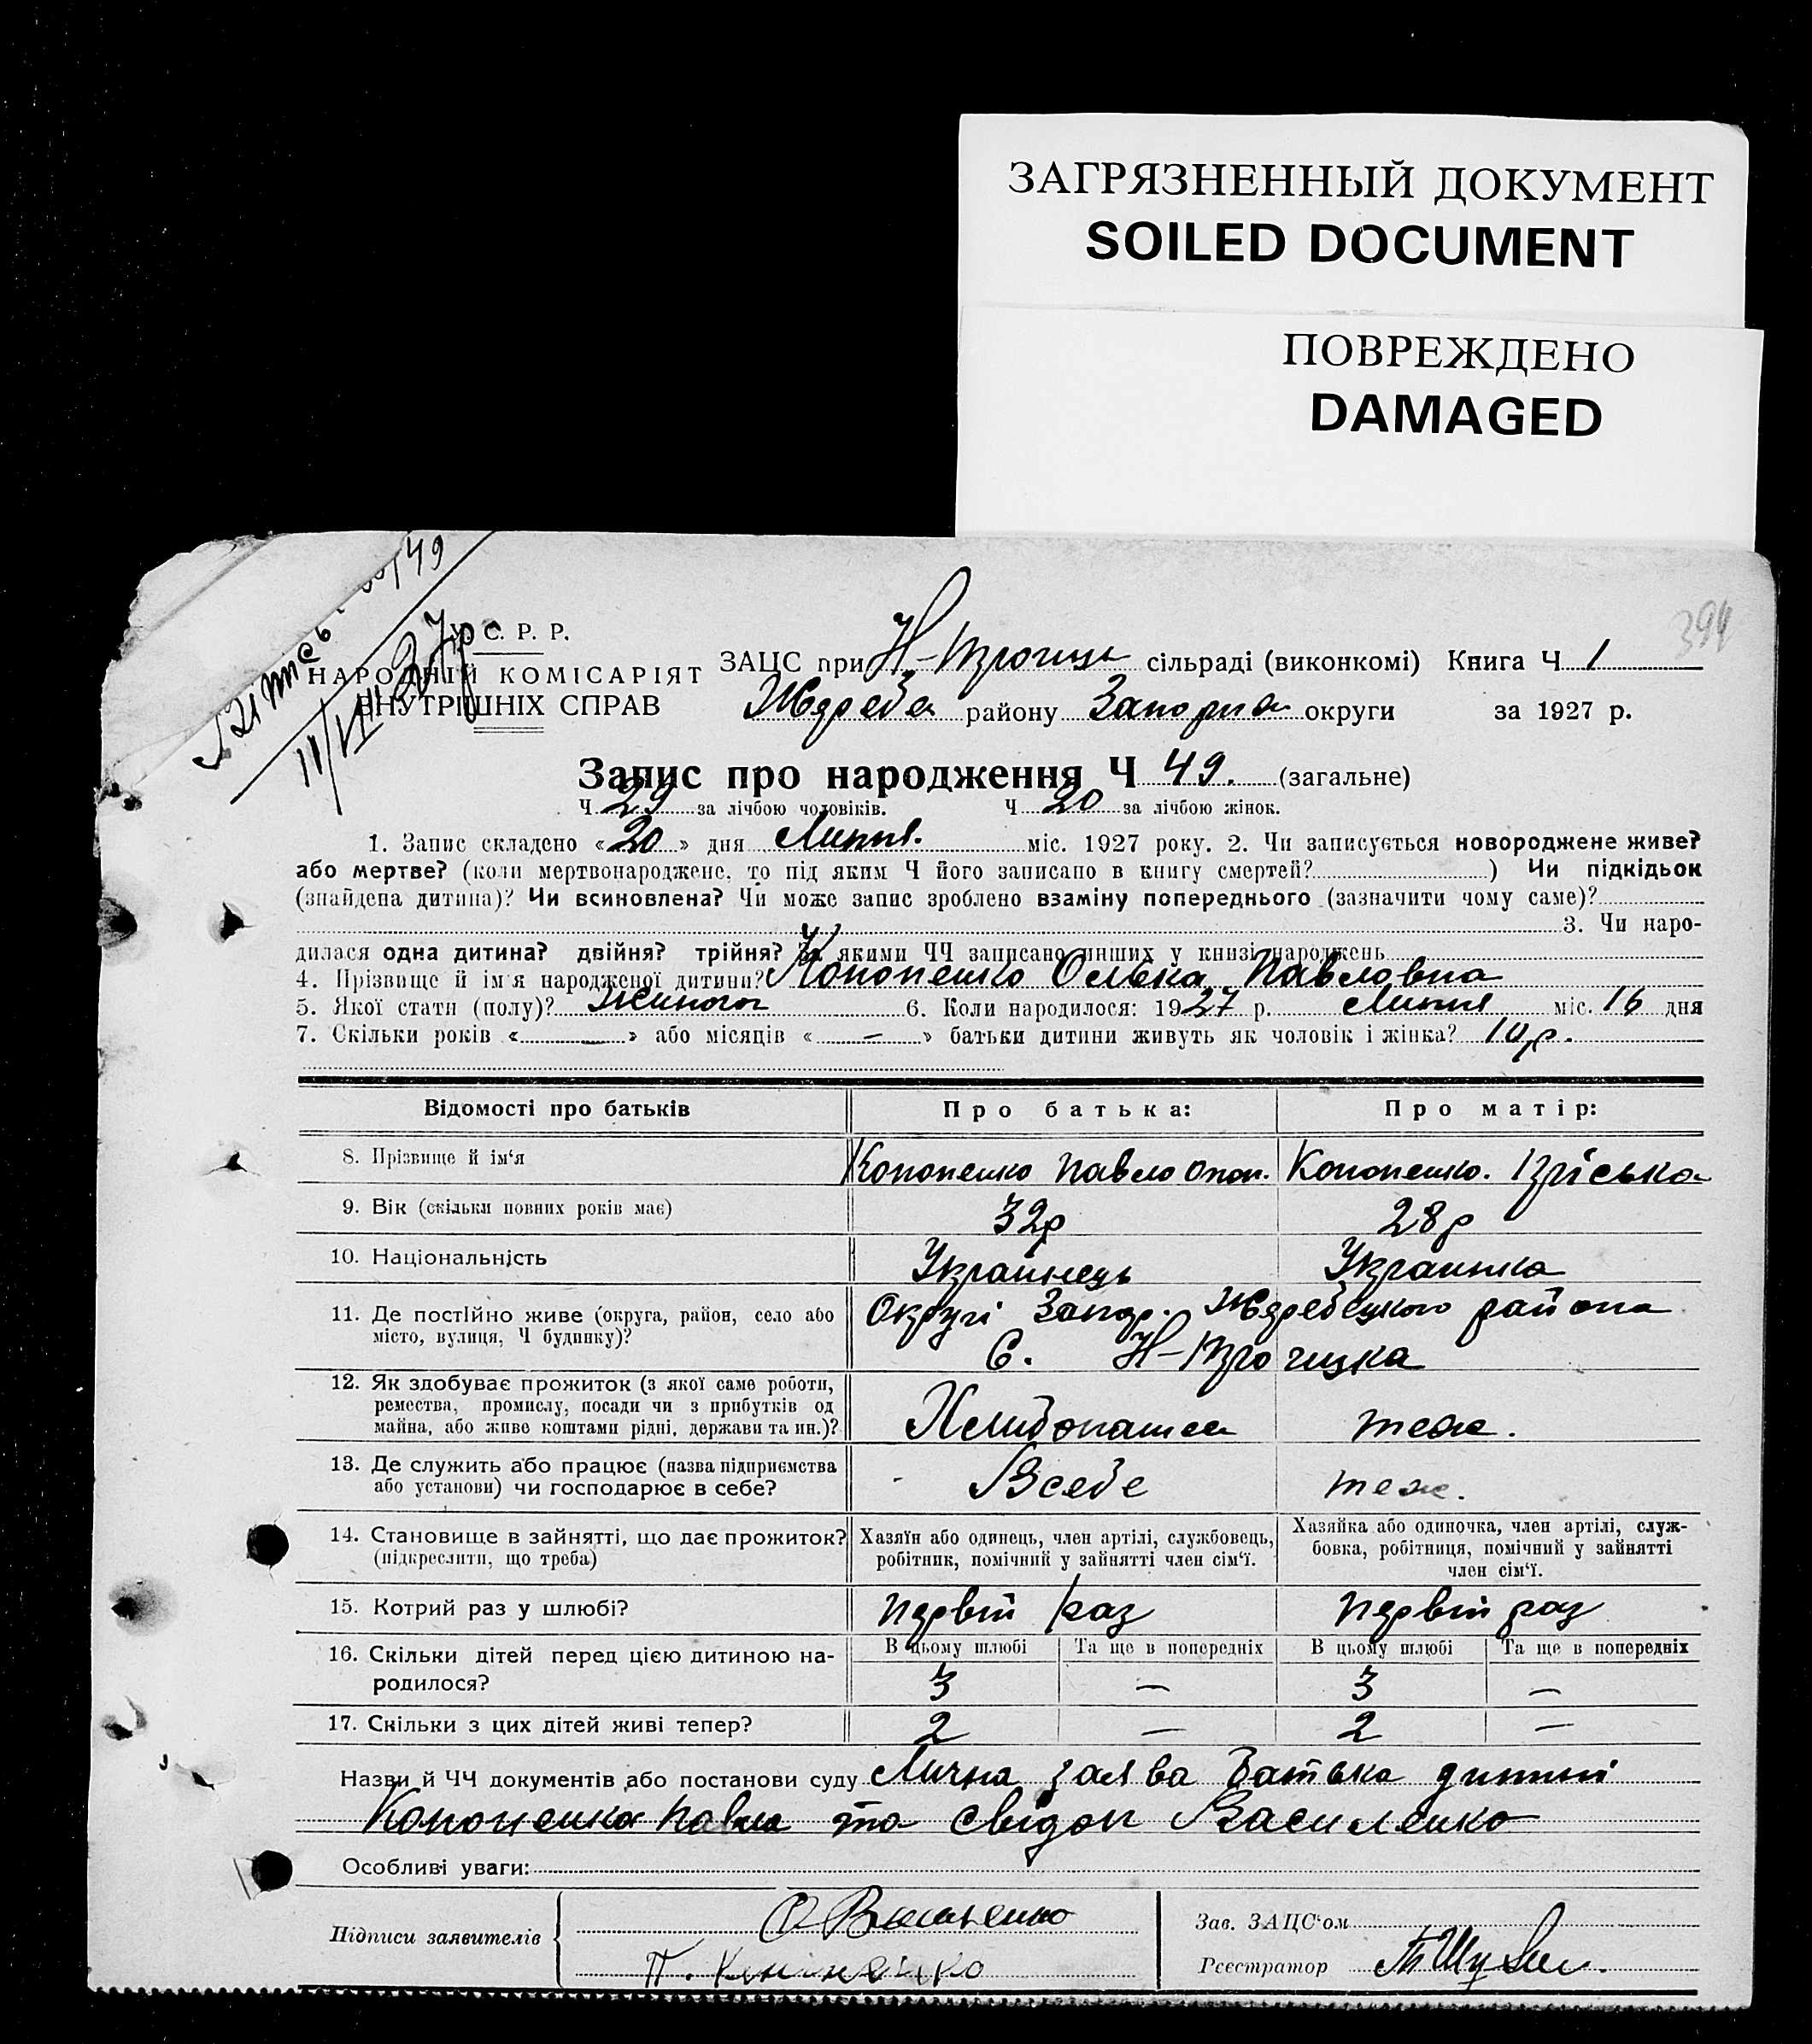 ЗАГРЯЗНЕННЫЙ ДОКУМЕНТ
SOILED DOCUMENT
ПОВРЕЖДЕНО
DAMAGED
394
49
У. С. Р. Р.
НАРОДНІЙ КОМІСАРІЯТ
ВНУТРІШНІХ СПРАВ
ЗАЦС при сільраді (виконкомі) Книга Ч 1
Жереб району Запоріз округи за 1927 р.
Запис про народження Ч 49. (загальне)
Ч 29 за лічбою чоловіків. Ч 20 за лічбою жінок.
1. Запис складено «20» дня Липня. міс. 1927 року. 2. Чи записується новороджене живе?
або мертве? (коли мертвонароджене, то під яким Ч його записано в книгу смертей? ) Чи підкідьок
(знайдена дитина)? Чи всиновлена? Чи може запис зроблено взаміну попереднього (зазначити чому саме)?
3. Чи наро-
дилася одна дитина? двійня? трійня? За якими ЧЧ записано инших у книзі народжень
4. Прізвище й ім'я народженої дитини? Кононенко Олька Павловна
5. Якої стати (полу)? Жиночог 6. Коли народилося: 1927 р. Липня міс. 16 дня
7. Скільки років «—» або місяців «—» батьки дитини живуть як чоловік і жінка? 10 р.
Відомості про батьків Про батька: Про матір:
8. Прізвище й ім'я Кононенко Павло Кононенко.
9. Вік (скільки повних років має) 32р 28р
10. Національність Украинець Украинка
11. Де постійно живе (округа, район, село або Округі Запор. Жеребецкого района
місто, вулиця, Ч будинку)? С.
12. Як здобуває прожиток (з якої саме роботи,
ремества, промислу, посади чи з прибутків од
майна, або живе коштами рідні, держави та ин.)? Хлибопашец теж.
13. Де служить або працює (назва підприємства
або установи) чи господарює в себе? Всебе теж.
14. Становище в зайнятті, що дає прожиток? Хазяїн або одинець, член артілі, службовець, Хазяйка або одиночка, член артілі, служ-
(підкреслити, що треба) робітник, помічний у зайнятті член сім'ї. бовка, робітниця, помічний у зайнятті
член сім'ї.
15. Котрий раз у шлюбі? первій раз первій раз
16. Скільки дітей перед цією дитиною на- В цьому шлюбі Та ще в попередніх В цьому шлюбі Та ще в попередніх
родилося? 3 — 3 —
17. Скільки з цих дітей живі тепер? 2 — 2 —
Назви й ЧЧ документів або постанови суду Лична заява Батька дитині
Кононенка Павла та свідок Василенко
Особливі уваги:
Підписи заявителів О Василенко Зав. ЗАЦС'ом
П. Кононенко Реєстратор